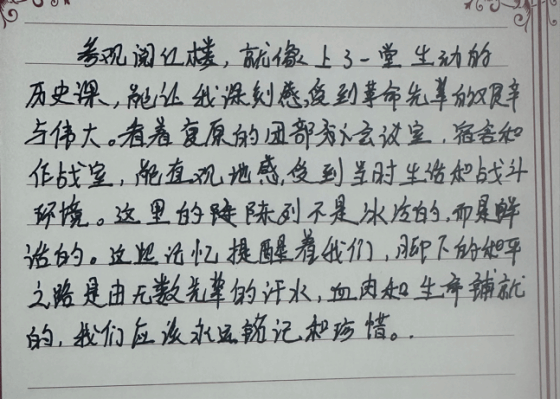 参观阅红楼，就像上了一堂生动的
历史课，能让我深刻感受到革命先辈的艰辛
与伟大。看着复原的团部会议室，宿舍和
作战室，能直观地感受到当时生活和战斗
环境。这里的陈列不是冰冷的，而是鲜
活的。这些记忆提醒着我们，脚下的和平
之路是由无数先辈的汗水，血肉和生命铺就
的，我们应该永远铭记和珍惜。